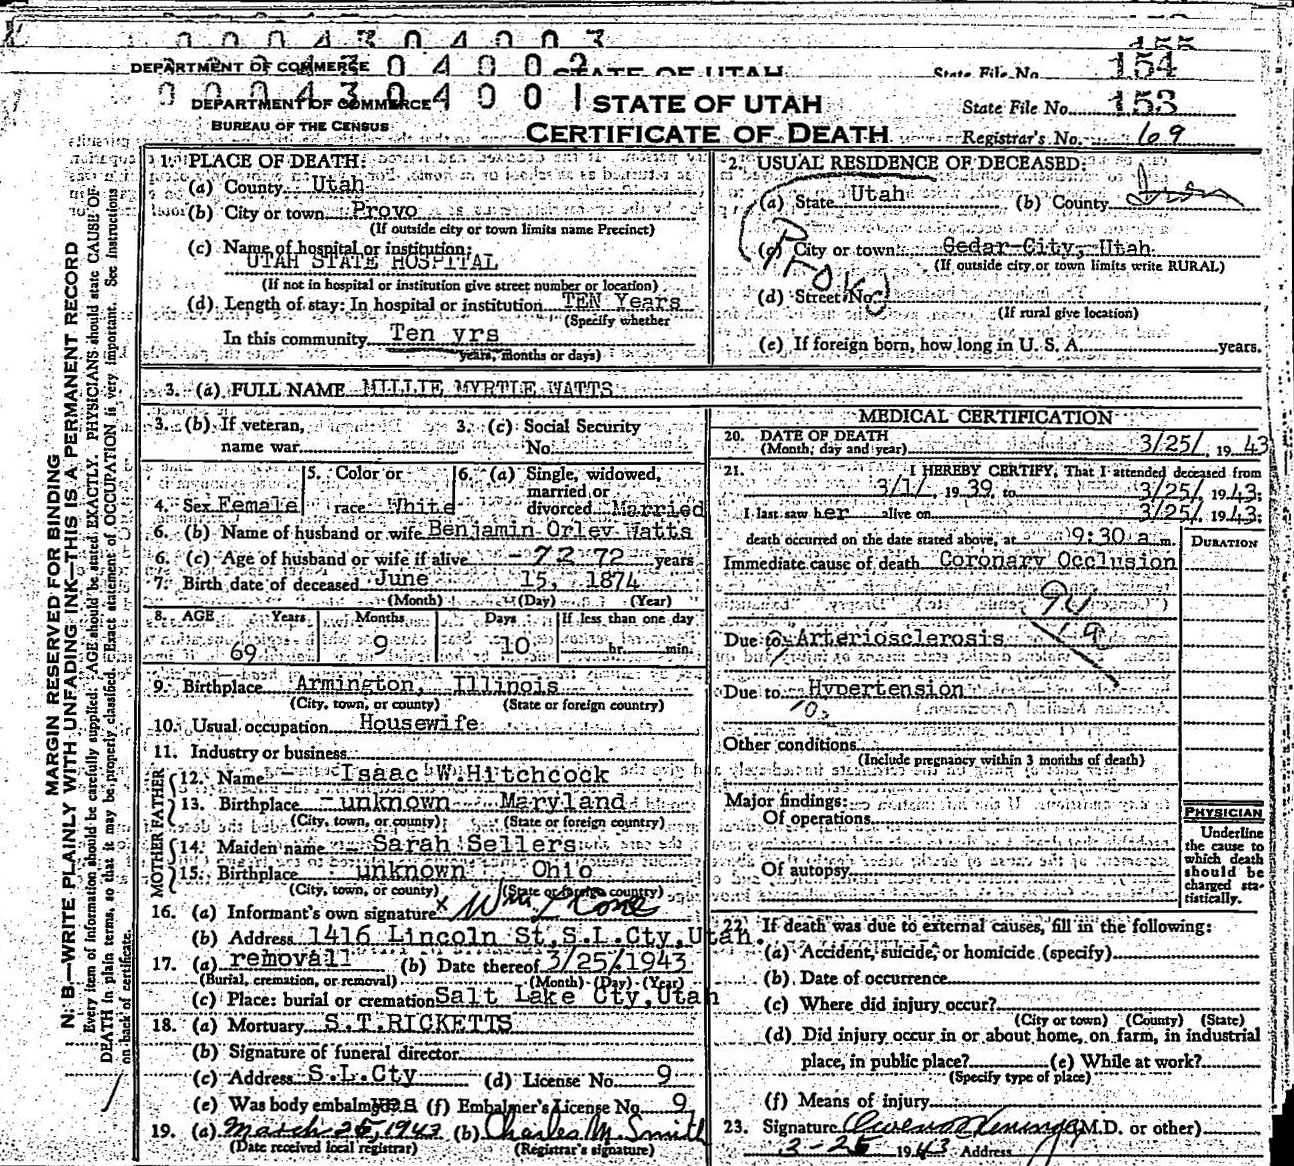 155
0 0 0 4 3 0 4 0 0 3
DEPARTMENT OF COMMERCE 0 0 0 4 3 0 4 0 0 2 STATE OF UTAH State File No. 154
0 0 0 4 3 0 4 0 0 1
DEPARTMENT OF COMMERCE STATE OF UTAH State File No. 153
BUREAU OF THE CENSUS CERTIFICATE OF DEATH Registrar's No. 69
MARGIN RESERVED FOR BINDING
N. B.—WRITE PLAINLY WITH UNFADING INK—THIS IS A PERMANENT RECORD
Every item of information should be carefully supplied. AGE should be stated EXACTLY. PHYSICIANS should state CAUSE OF
DEATH in plain terms, so that it may be properly classified. Exact statement of OCCUPATION is very important. See instructions
on back of certificate.
1. PLACE OF DEATH:
(a) County Utah
(b) City or town Provo
(If outside city or town limits name Precinct)
(c) Name of hospital or institution:
UTAH STATE HOSPITAL
(If not in hospital or institution give street number or location)
(d) Length of stay: In hospital or institution TEN Years
(Specify whether
In this community Ten yrs
years, months or days)
2. USUAL RESIDENCE OF DECEASED:
(a) State Utah (b) County Iron
(c) City or town Cedar City, Utah
Provo
(If outside city or town limits write RURAL)
(d) Street No.
(If rural give location)
(e) If foreign born, how long in U. S. A. years.
3. (a) FULL NAME MILLIE MYRTLE WATTS
3. (b) If veteran, 3. (c) Social Security
name war No.
5. Color or 6. (a) Single, widowed,
married or
4. Sex Female race White divorced Married
6. (b) Name of husband or wife Benjamin Orley Watts
6. (c) Age of husband or wife if alive -72 72 years
7. Birth date of deceased June 15, 1874
(Month) (Day) (Year)
8. AGE Years Months Days If less than one day
69 9 10 hr. min.
9. Birthplace Armington, Illinois
(City, town, or county) (State or foreign country)
10. Usual occupation Housewife
11. Industry or business
FATHER
12. Name Isaac W.Hitchcock
13. Birthplace -unknown Maryland
(City, town, or county) (State or foreign country)
MOTHER
14. Maiden name Sarah Sellers
15. Birthplace unknown Ohio
(City, town, or county) (State or foreign country)
16. (a) Informant's own signature x Wm.
(b) Address 1416 Lincoln St,S.L.Cty,Utah.
17. (a) removall (b) Date thereof 3/25/1943
(Burial, cremation, or removal) (Month) (Day) (Year)
(c) Place: burial or cremation Salt Lake Cty,Utah
18. (a) Mortuary S.T.RICKETTS
(b) Signature of funeral director
(c) Address S.L.Cty (d) License No. 9
(e) Was body embalmed yes (f) Embalmer's License No. 9
19. (a) March 25, 1943 (b) Charles M. Smith
(Date received local registrar) (Registrar's signature)
MEDICAL CERTIFICATION
20. DATE OF DEATH
(Month, day and year) 3/25/, 19 43
21. I HEREBY CERTIFY, That I attended deceased from
3/1/, 19 39 to 3/25/, 19 43;
I last saw her alive on 3/25/, 19 43;
death occurred on the date stated above, at 9:30 a.m. DURATION
Immediate cause of death Coronary Occlusion
94
Due to Arteriosclerosis
Due to Hypertension
102
Other conditions
(Include pregnancy within 3 months of death)
Major findings:
Of operations
Of autopsy
PHYSICIAN
Underline
the cause to
which death
should be
charged sta-
tistically.
22. If death was due to external causes, fill in the following:
(a) Accident, suicide, or homicide (specify)
(b) Date of occurrence
(c) Where did injury occur?
(City or town) (County) (State)
(d) Did injury occur in or about home, on farm, in industrial
place, in public place? (e) While at work?
(Specify type of place)
(f) Means of injury
23. Signature (M.D. or other)
3-25 1943 Address